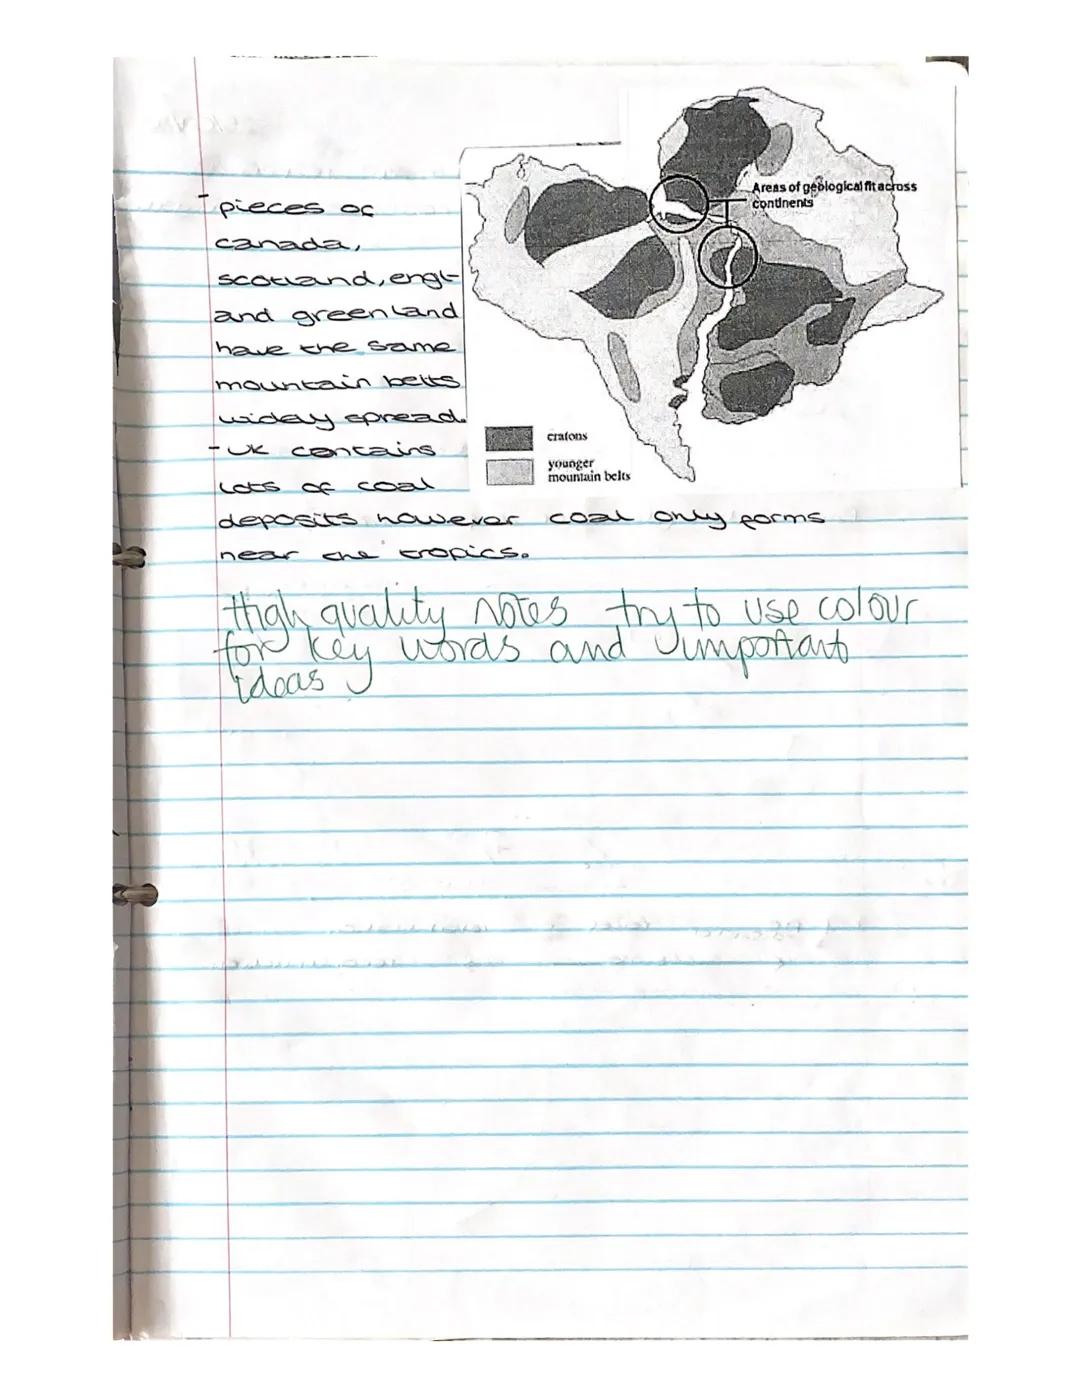 Areas of geological fit across
continents
- pieces of
canada,
scotland, engl-
and greenland
have the same
mountain belts
widely spread.
cratons
younger
mountain belts
- UK contains
lots of coal
deposits however coal only forms
near the tropics.
High quality notes try to use colour
for key words and important
ideas